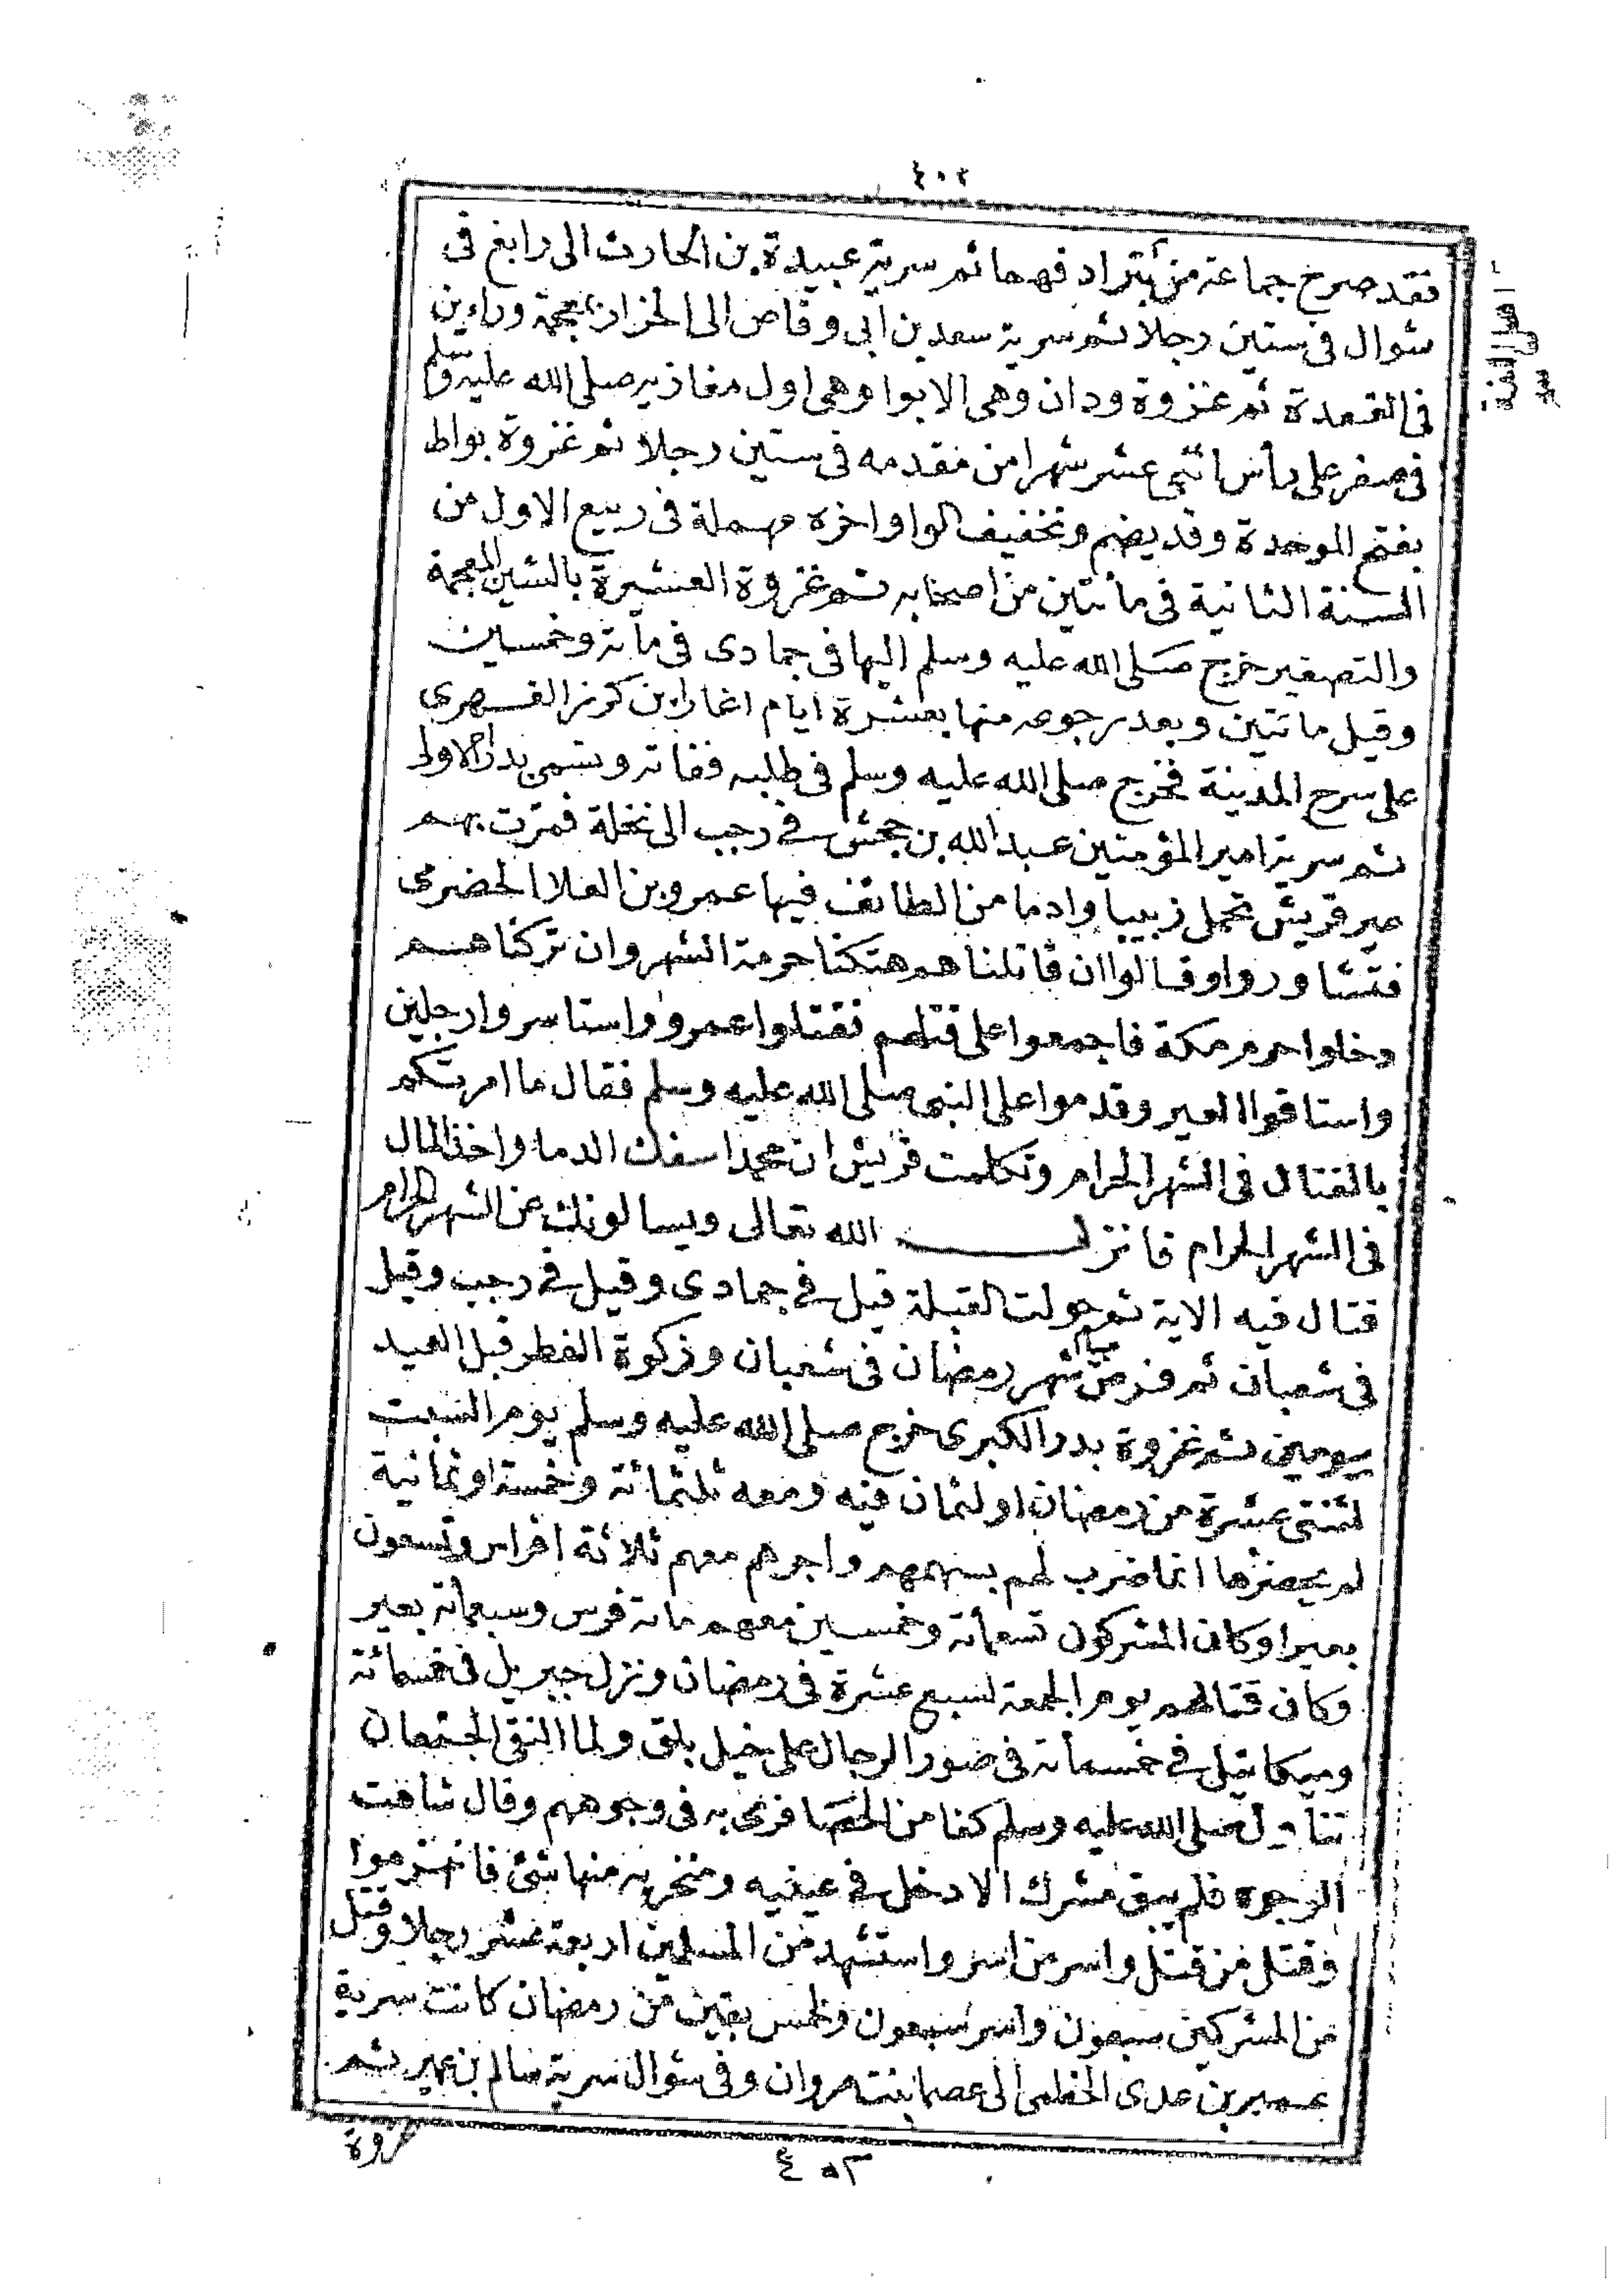 ٤٠٢
فقد صرح جماعة من أئتراد فهما ثم سرية عبيدة بن الحارث الى رابغ فى
شوال فى ستين رجلا ثم سرية سعد بن أبى وقاص الى الخزار بمعجمة وراءين
فى القعدة ثم غزوة ودان وهى الابوا وهى اول مغازيه صلى الله عليه وسلم
فى صفر على رأس اثنى عشر شهرا من مقدمه فى ستين رجلا ثم غزوة بواط
بفتح الموحدة وقد يضم وتخفيف الواو اخره مهملة فى ربيع الاول من
السنة الثانية فى مائتين من اصحابه ثم غزوة العشيرة بالشين المعجمة
والتصغير خرج صلى الله عليه وسلم اليها فى جمادى فى مأئة وخمسين
وقيل مائتين وبعد رجوعه منها بعشرة ايام اغار ابن كرز الفهرى
على سرح المدينة فخرج صلى الله عليه وسلم فى طلبه ففاته وتسمى بدر الاولى
ثم سرية امير المؤمنين عبد الله بن جحش فى رجب الى نخلة فمرت بهم
عير قريش تحمل زبيبا وادما من الطائف فيها عمرو بن العلا الحضرمى
فتشاوروا وقالوا ان قاتلناهم هتكنا حرمة الشهر وان تركناهم
دخلوا حرم مكة فاجمعوا على قتلهم فقتلوا عمرو واستاسروا رجلين
واستاقوا العير وقدموا على النبى صلى الله عليه وسلم فقال ما امرتكم
بالقتال فى الشهر الحرام وتكلمت قريش ان محمدا سفك الدما واخذ المال
فى الشهر الحرام فانزل الله تعالى ويسالونك عن الشهر الحرام
قتال فيه الاية ثم حولت القبلة قيل فى جمادى وقيل فى رجب وقيل
فى شعبان ثم فرض صيام شهر رمضان فى شعبان وزكوة الفطر قبل العيد
بيومين ثم غزوة بدر الكبرى خرج صلى الله عليه وسلم يوم السبت
لثنتى عشرة من رمضان او لثمان فيه ومعه ثلثمائة وخمسة او ثمانية
لم يحضرها انما ضرب لهم بسهمهم واجرهم معهم ثلاثة افراس وتسعون
بعيرا وكان المشركون تسعمأئة وخمسين معهم مائة فرس وسبعمأئة بعير
وكان قتالهم يوم الجمعة لسبع عشرة فى رمضان ونزل جبريل فى خمسمائة
وميكائيل فى خمسمائة فى صور الرجال على خيل بلق ولما التقى الجمعان
تناول صلى الله عليه وسلم كفا من الحصا فرمى به فى وجوههم وقال شاهت
الوجوه فلم يبق مشرك الا دخل فى عينيه ومنخريه منها شئ فانهزموا
وقتل من قتل واسر من اسر واستشهد من المسلمين اربعة عشر رجلا وقتل
من المشركين سبعون واسر سبعون ولخمس بقين من رمضان كانت سرية
عمير بن عدى الخطمى الى عصما بنت مروان وفى شوال سرية سالم بن عمير ثم
غزوة
٤٠٢